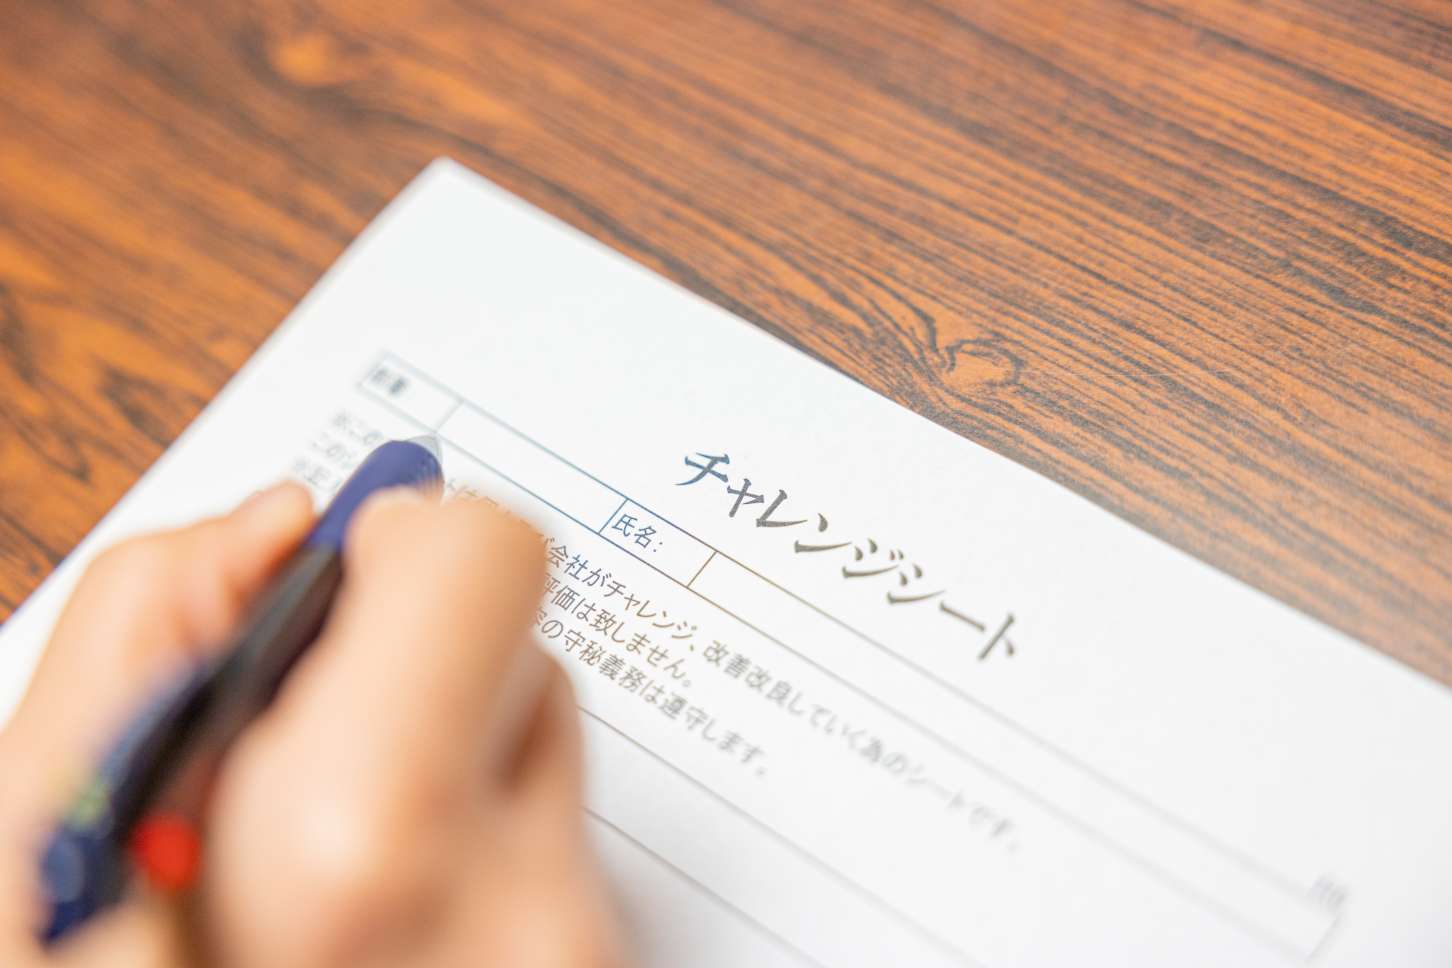 チャレンジシート
部署
氏名:
会社がチャレンジ、改善改良していく為のシートです。
評価は致しません。
の守秘義務は遵守します。